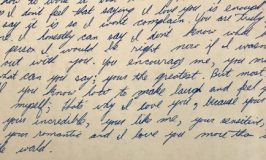 I don't feel that saying I love you is enough
say it is so I wont complain. You are truly
I honestly can say I don't know what
person I would be right now if I wasn't
out with you. You encourage me, you m
hat can you say; your the greatest. But most
you know how to make laugh and feel g
myself; thats why I love you, because your
your incredible, your like me, your sensitive,
your romantic and I love you more than a
the world.